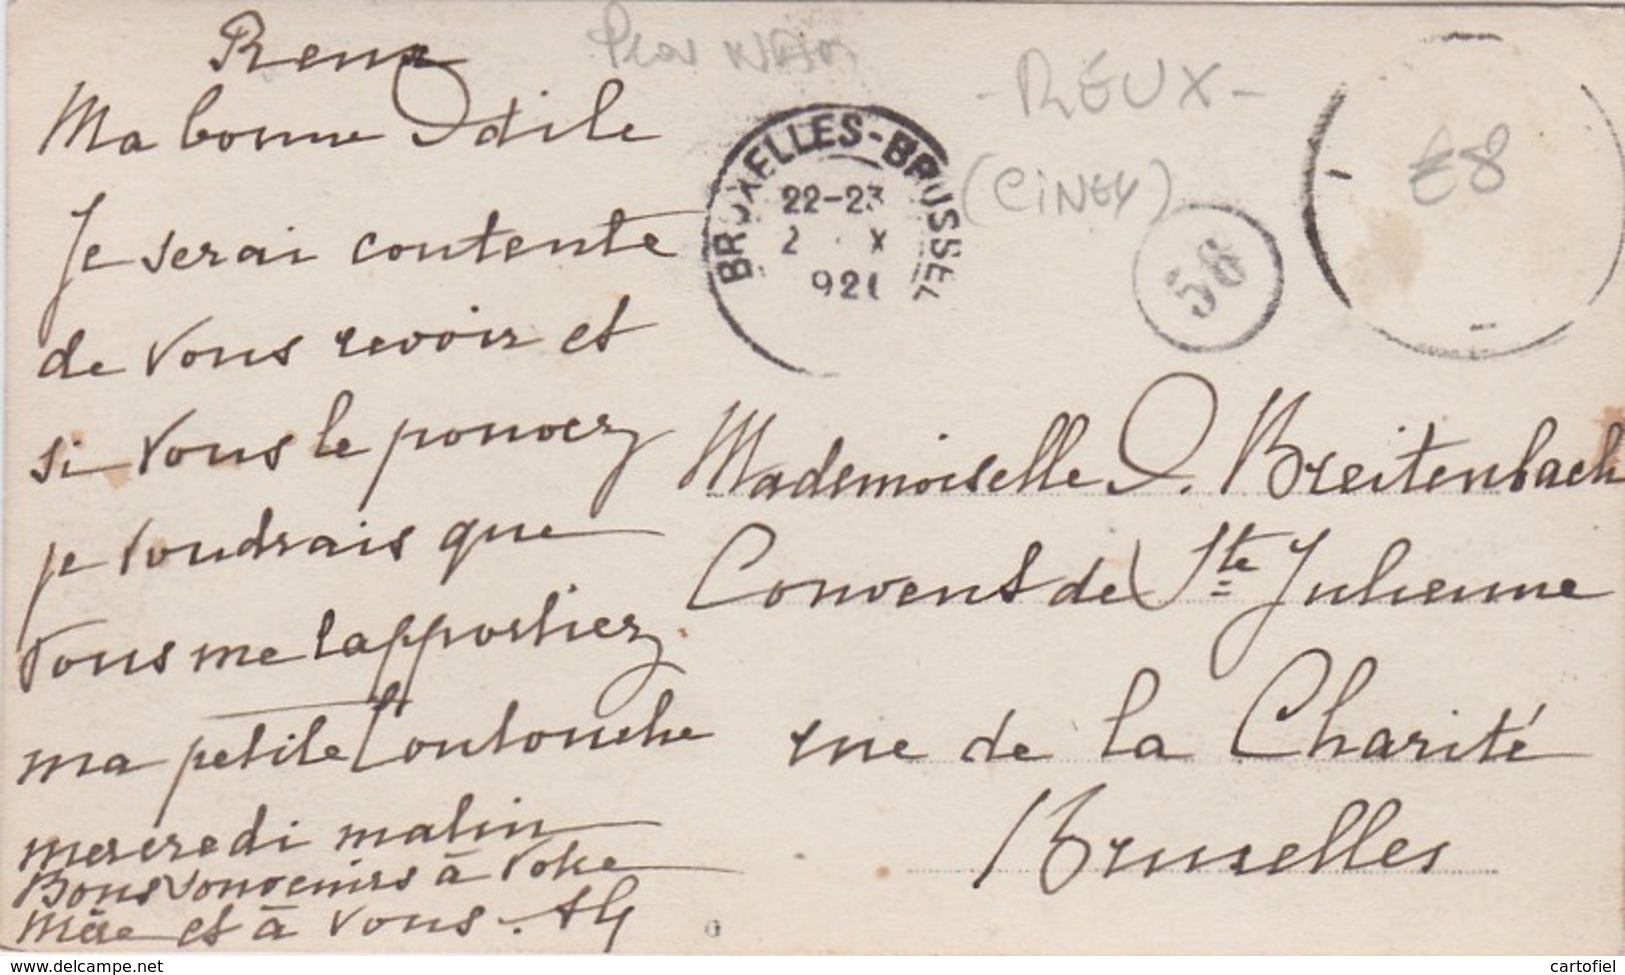 Reux
Ma bonne Odile
Je serai contente
de vous revoir et
si vous le pouvez
je voudrais que
vous me rapportiez
ma petite Loulouche
mercredi matin
Bons souvenirs à votre
Mère et à vous.
- RÉUX -
(CINEY)
£8
BRUXELLES-BRUSSEL
22-23
2 X
1921
58
Mademoiselle O. Breitenbach
Couvent de Ste Julienne
rue de la Charité
Bruxelles
delcampe.net
cartofiel